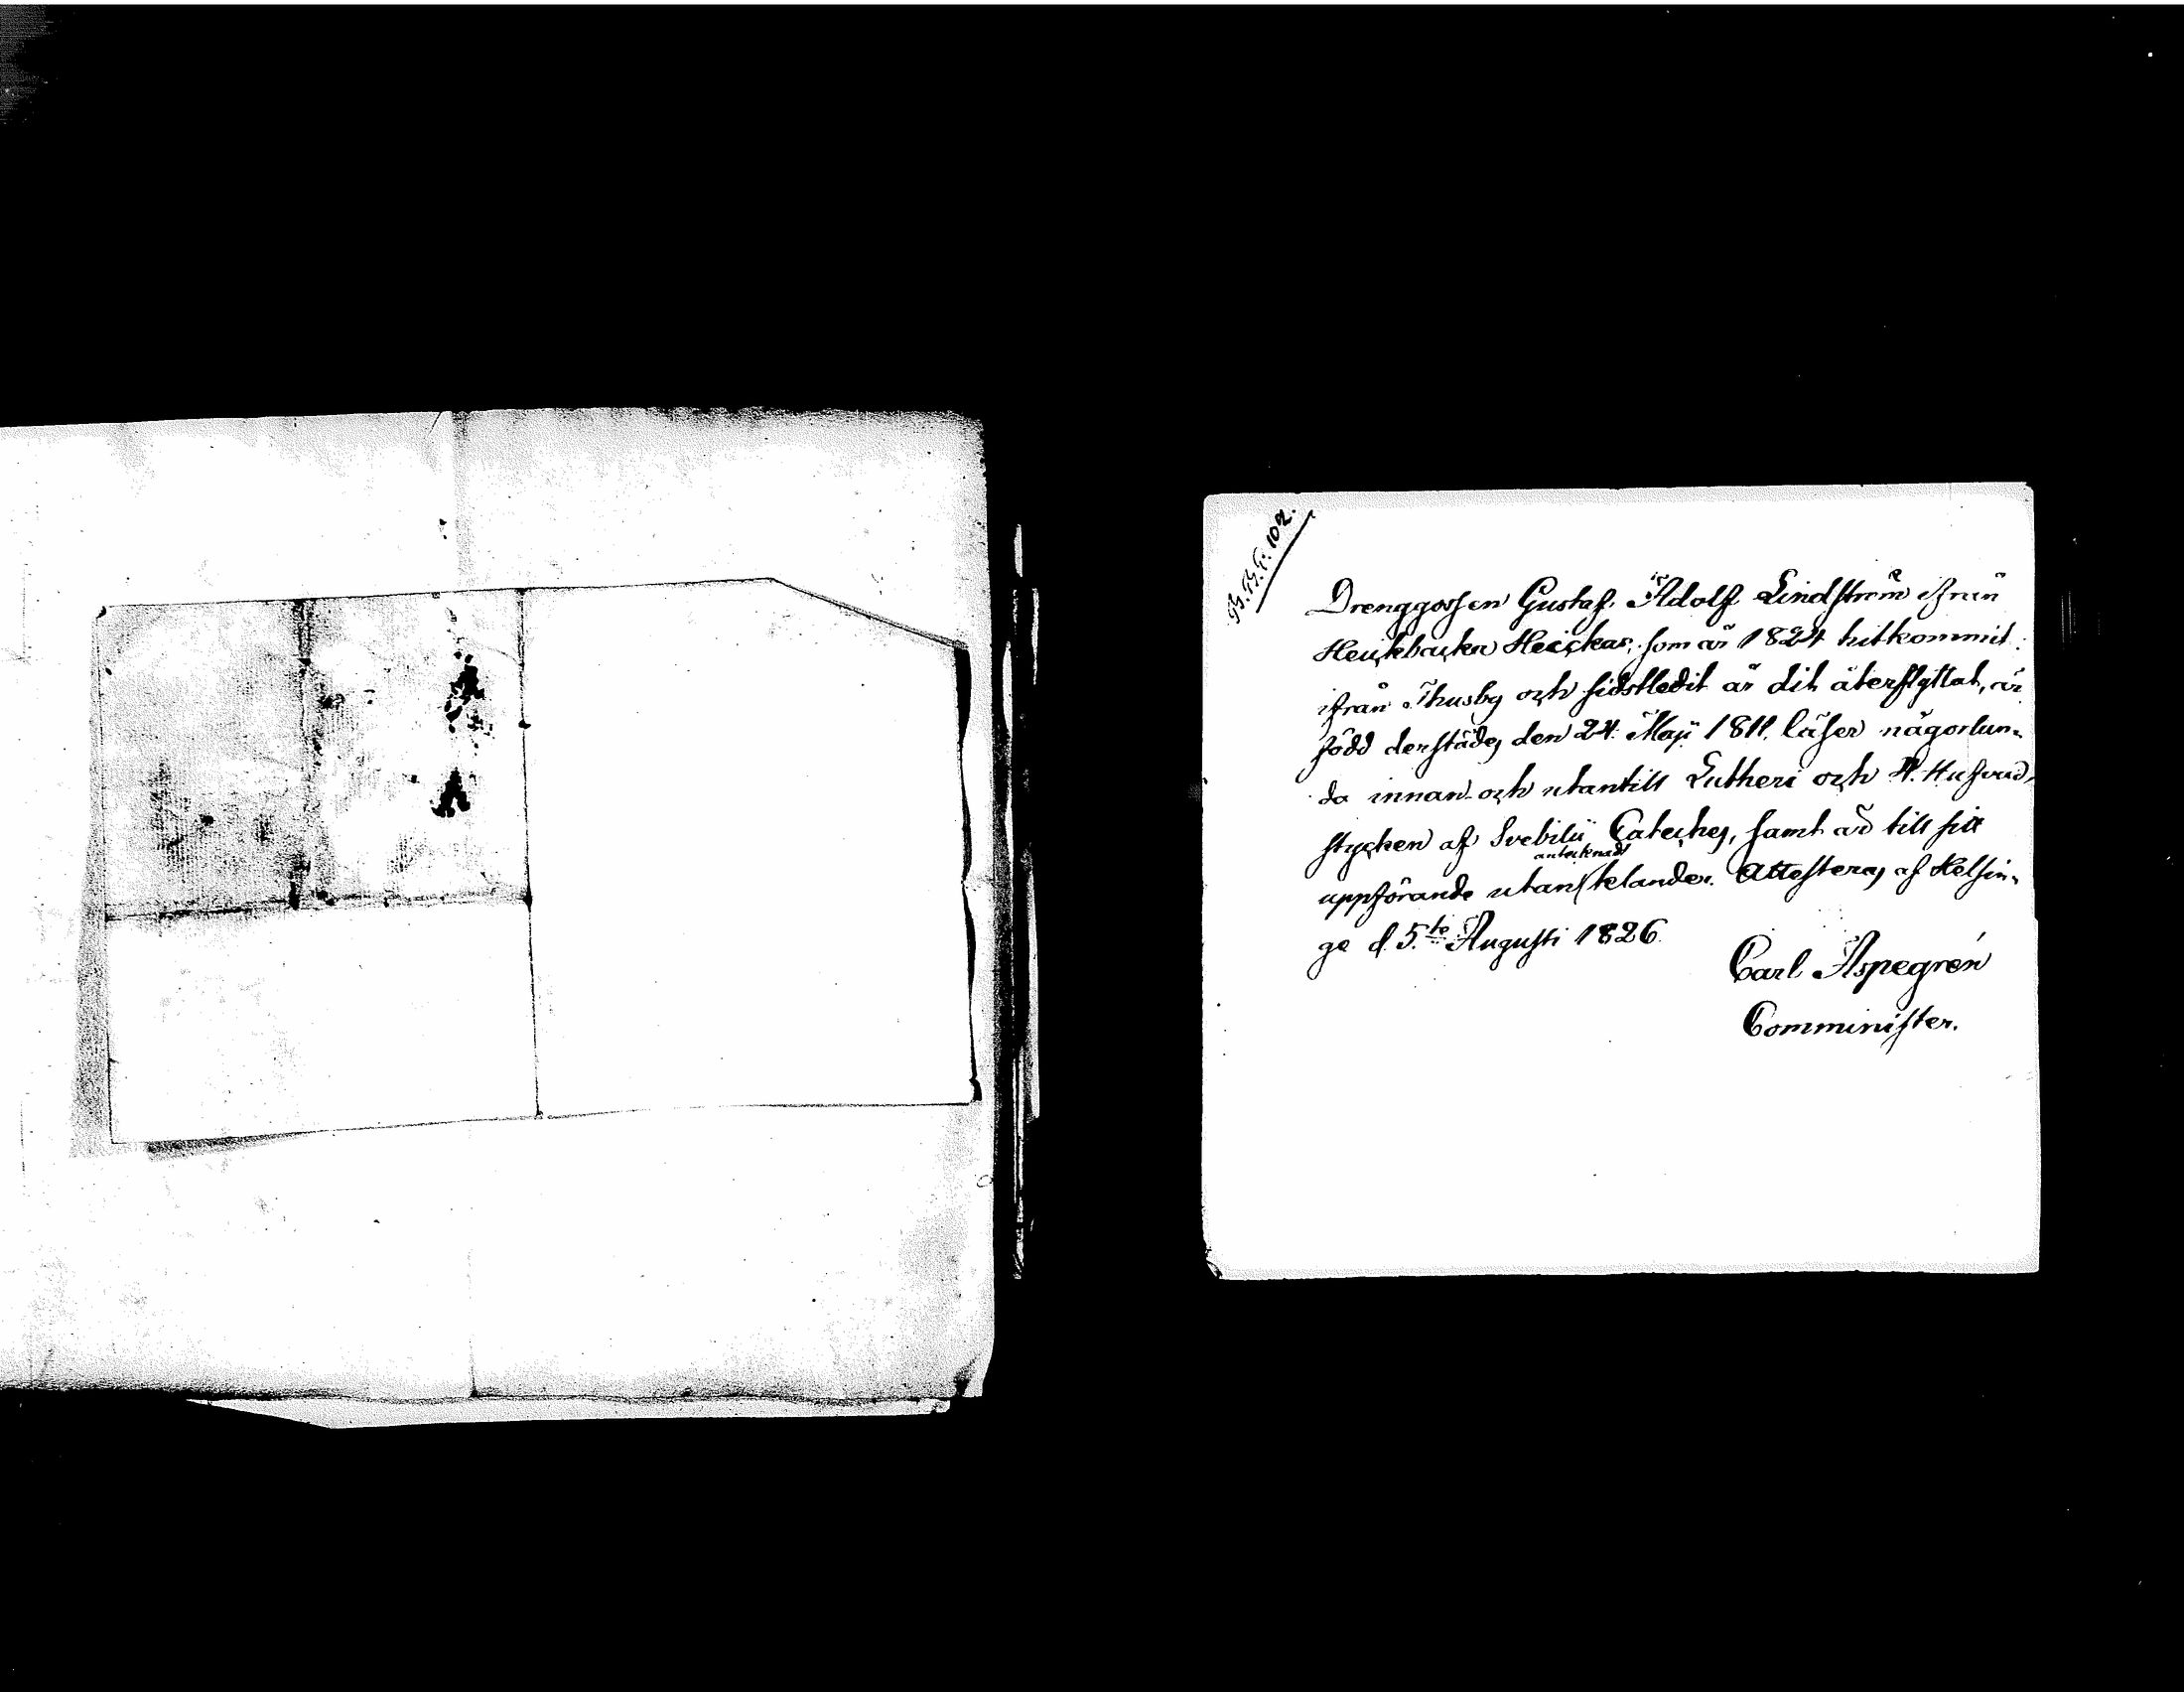 102.
Drenggossen Gustaf Adolf Lindström ifrån
Heickbacka Heickas, som år 1824 hitkommit
ifrån Thusby och sidstledit år dit återflyttat, är
född derstädes den 24 Maji 1811, läser någorlun-
da innan och utantill Lutheri och H. Hufvud-
stycken af Svebilii Cateches, samt är till sitt
antecknadt
uppförande utan telander. Attesteras af Helsin-
ge d. 5te Augusti 1826
Carl Aspegrén
Comminister.